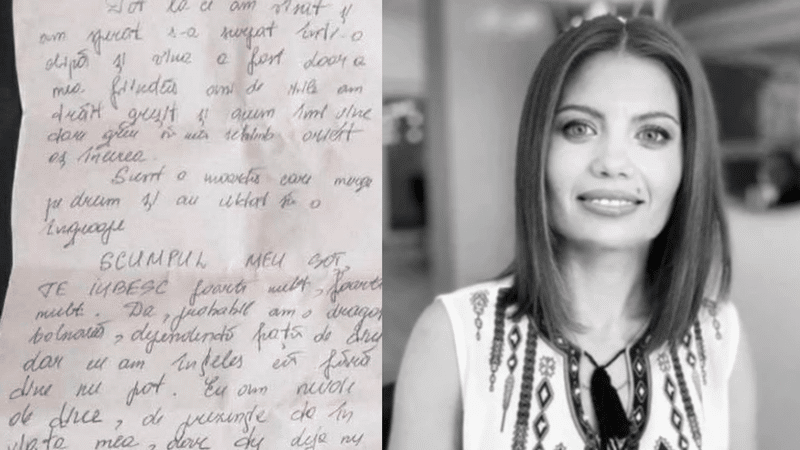 Tot la ce am visat și
am sperat s-a surpat într-o
clipă și vina a fost doar a
mea fiindcă ani de zile am
drăit greșit și acum îmi vine
dare greu să mă schimb oricât
aș încerca.
Sunt o moartă care merge
pe drum și au uitat s-o
îngroape
SCUMPUL MEU SOȚ,
TE IUBESC foarte mult, foarte
mult. Da, probabil am o dragos
bolnavă, dependentă față de tine
dar eu am înțeles că fără
tine nu pot. Eu am nevoie
de tine, de prezența ta în
viața mea, doar că deja nu